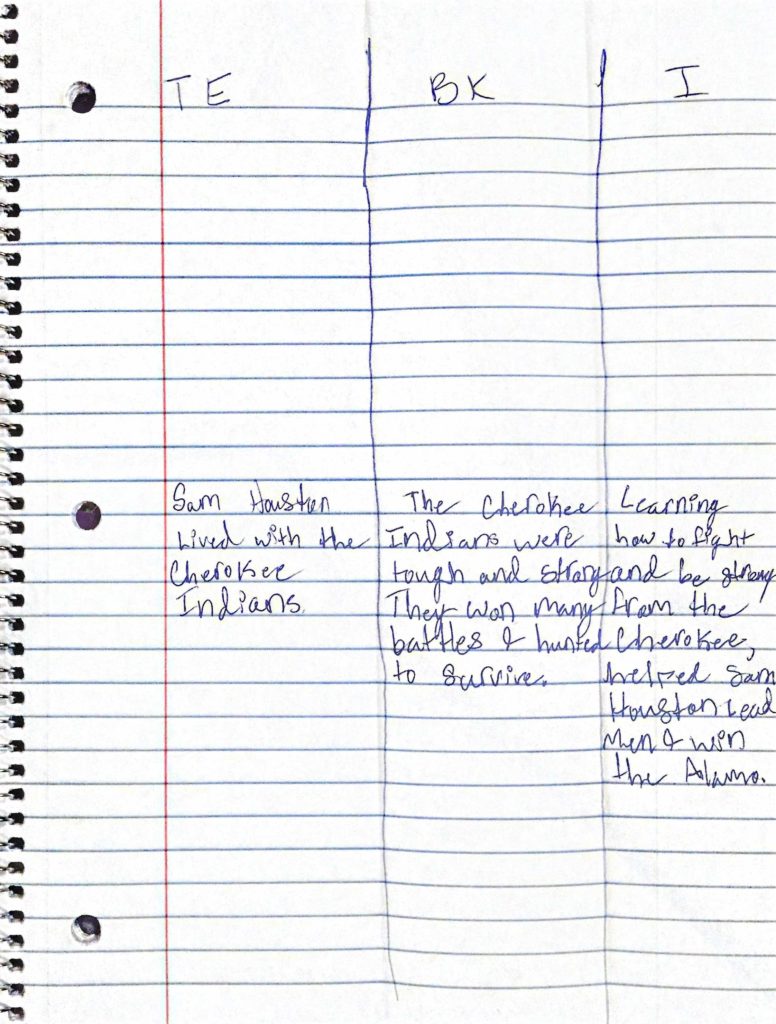 TE
BK
I
Sam Houston
Lived with the
Cherokee
Indians.
The Cherokee
Indians were
tough and strong
They won many
battles & hunted
to survive.
Learning
how to fight
and be strong
from the
Cherokee,
helped Sam
Houston Lead
Men & win
the Alamo.